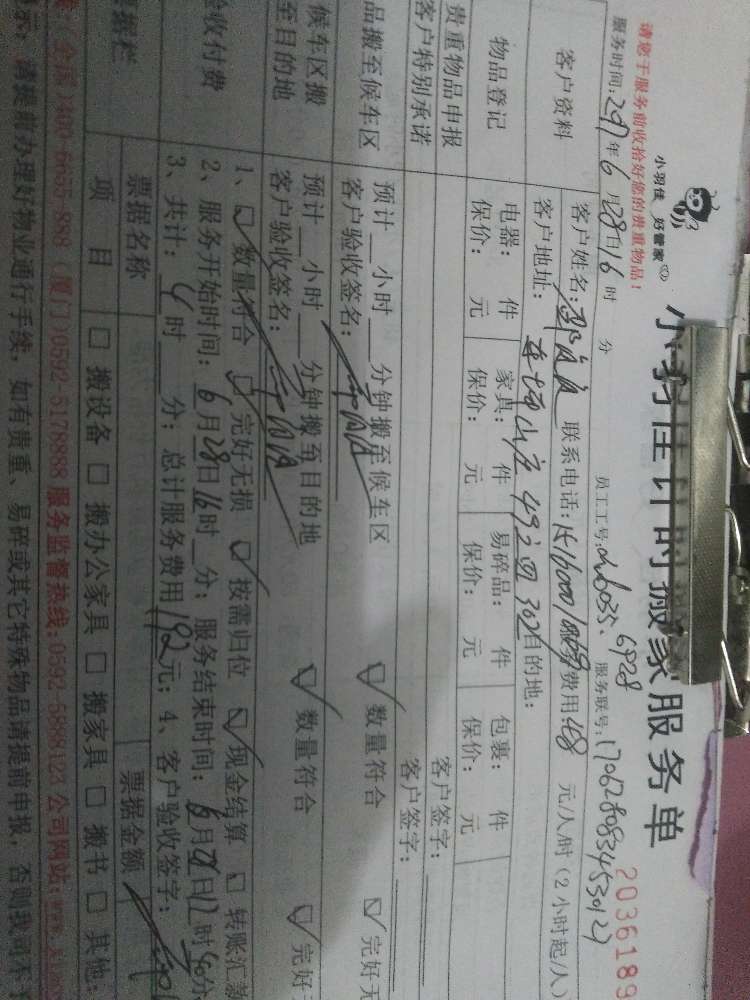 小羽佳 好管家
小羽佳计时搬家服务单
2036189
请您于服务前收拾好您的贵重物品!
服务时间:2017年6月28日16时 分 员工工号: 6928 服务联号:1706280834530127
客户资料
客户姓名: 联系电话: 费用:48 元/人/时(2小时起/人)
客户地址: 山庄49之四302 目的地:
物品登记
电器: 件 家具: 件 易碎品: 件 包裹: 件
保价: 元 保价: 元 保价: 元 保价: 元
贵重物品申报 客户签字:
客户特别承诺 客户签字:
品搬至候车区
预计 小时 分钟搬至候车区 ☑数量符合 ☑完好无
客户验收签名:
候车区搬
至目的地
预计 小时 分钟搬至目的地 ☑数量符合 ☑完好
客户验收签名:
验收付费
1、☑数量符合 ☑完好无损 ☑按需归位 ☑现金结算 □转账汇款
2、服务开始时间:6月28日16时 分;服务结束时间:6月28日17时40分
3、共计:4时 分;总计服务费用192元;4、客户验收签字:
票据栏
票据名称 票据金额
项 目 □搬设备 □搬办公家具 □搬家具 □搬书 □其他:
全国)400-6655-888 (厦门)0592-5178888 服务监督热线:0592-5888123 公司网站:www.
示:请提前办理好物业通行手续,如有贵重、易碎或其它特殊物品请提前申报,否则我司不